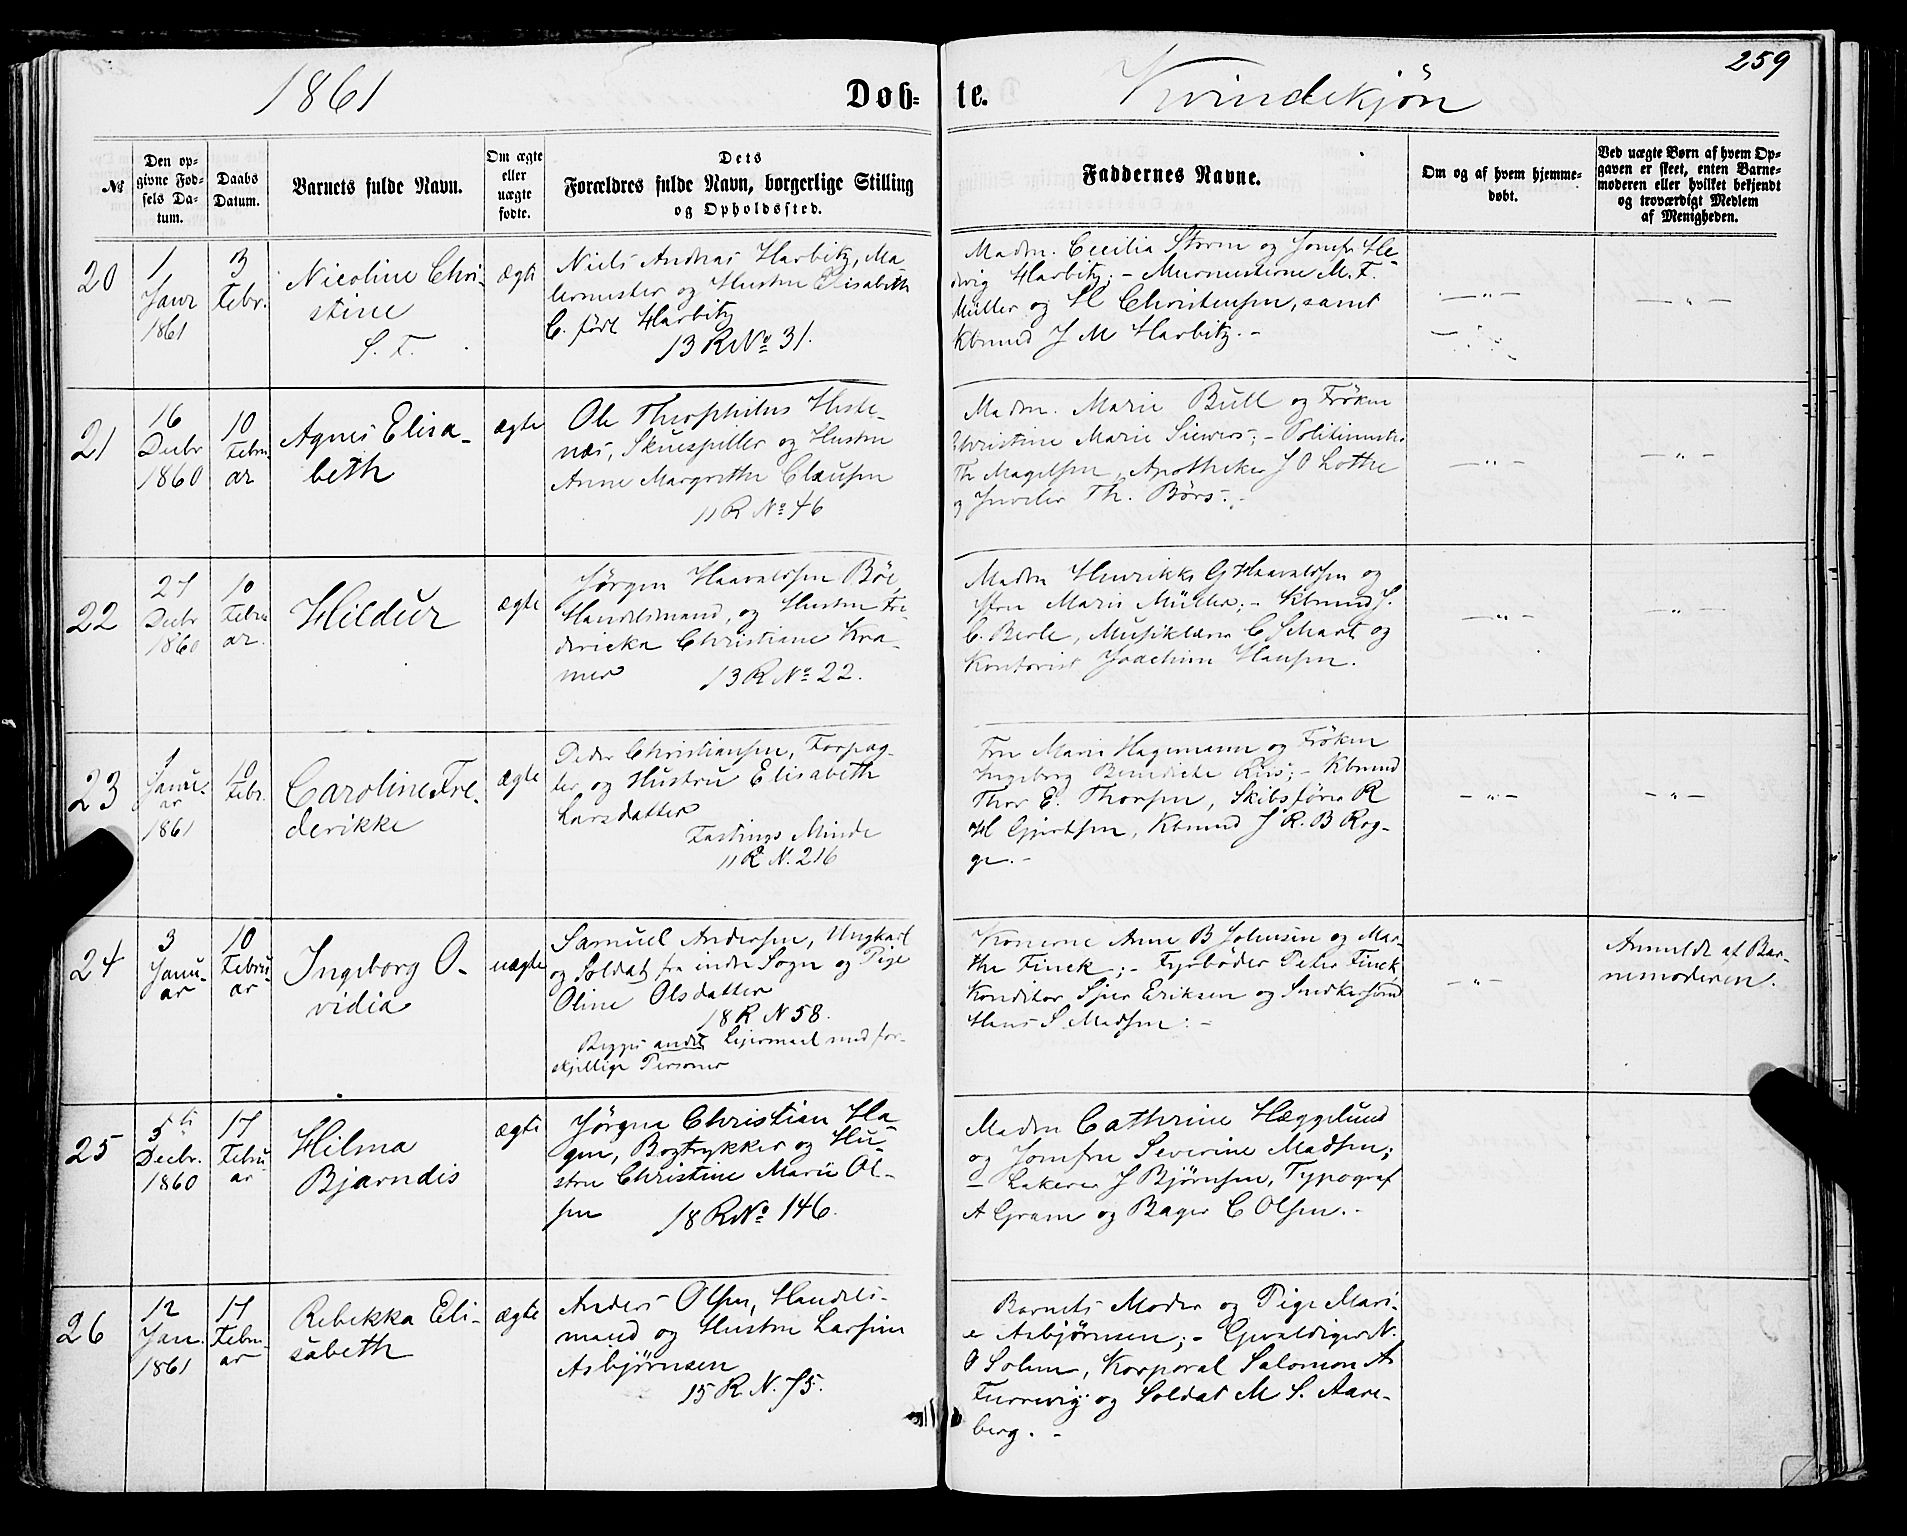 259
1861
Døb-
te.
Kvindekjøn
№
Den op-
givne Fød-
sels Da-
tum.
Daabs
Datum.
Barnets fulde Navn.
Om ægte
eller
uægte
fødte.
Dets
Forældres fulde Navn, borgerlige Stilling
og Opholdssted.
Faddernes Navne.
Om og af hvem hjemme-
døbt.
Ved uægte Børn af hvem Op-
gaven er skeet, enten Barne-
moderen eller hvilket bekjendt
og troværdigt Medlem
af Menigheden.
20
1
Janr
1861
3
Febr.
Nicoline Chri-
stine
S. F.
ægte
Niels Andreas Harbitz, Ma-
lermester og Hustru Elisabeth
C. født Harbitz
13 R No 31.
Madm. Cecilia Storm og Jomfr He-
dvig Harbitz; - Murmesterne M. F.
Müller og H Christensen, samt
Kbmnd J M Harbitz. -
— „ —
— „ —
21
16
Decbr
1860
10
Febru-
ar
Agnes Elisa-
beth
ægte
Ole Theophilus Histe-
næs, Skuespiller og Hustru
Anne Margrethe Clausen
11 R No 46
Madm. Marie Bull og Frøken
Christine Marie Siewers; - Politimester
Th Magelsen, Apotheker J O Lothe
og Juveler Th. Børs. -
— „ —
— „ —
22
27
Decbr
1860
10
Febru
ar.
Hildur
ægte
Jørgen Haavaldsen Böe
Handelsmand, og Hustru Fre-
dericka Christiane Kra-
mer
13 R No 22.
Madm Henrikke G Haavaldsen og
Fru Marie Müller; - Kbmnd J.
C. Berle, Musiklærer C Schart og
Kontorist Joachim Hansen.
— „ —
— „ —
23
1
Janu-
ar
1861
10
Febr.
Caroline Fre-
derikke
ægte
Peder Christiansen, Forpag-
ter og Hustru Elisabeth
Larsdatter
Fastings Minde
11 R N. 216
Fru Marie Hagemann og Frøken
Ingeborg Benedicte Riis; - Kbmnd
Thor E. Thorsen, Skibsfører R
H Gjertsen, Kbmnd J. R. B Rog-
ge. -
— „ —
— „ —
24
3
Janu-
ar
10
Febru-
ar
Ingeborg O-
vidia
uægte
Samuel Andersen, Ungkarl
og Soldat fra indre Sogn og Pige
Oline Olsdatter
18 R N 58.
Begges andet Leiermaal med for-
skjellige Personer
Konerne Anne B Johnsen og Mar-
the Finck; - Fyrbøder Peter Finck,
Konditor Sjur Eriksen og Snedkersvend
Hans S. Madsen: -
— „ —
Anmeldt af Bar-
nemoderen.
25
5ti
Decbr.
1860
17
Febru
ar
Hilma
Bjarndis
ægte
Jørgen Christian Ha-
gen, Bogtrykker og Hu-
stru Christine Marie Ol-
sen
18 R No 146.
Madm Cathrine Hæggelund
og Jomfru Severine Madsen;
- Lakerer J Bjørnsen, Typograf
A Gram og Bager C Olsen. -
26
12
Jan.
1861
17
Febru-
ar
Rebekka Eli-
sabeth
ægte
Anders Olsen, Handels-
mand og Hustru Larsine
Asbjørnsen
15 R N. 75.
Barnets Moder og Pige Mari-
e Asbjørnsen; - Gevaldiger N.
O Solem, Korporal Salomon A
Furrevig og Soldat M S. Aare-
berg. -